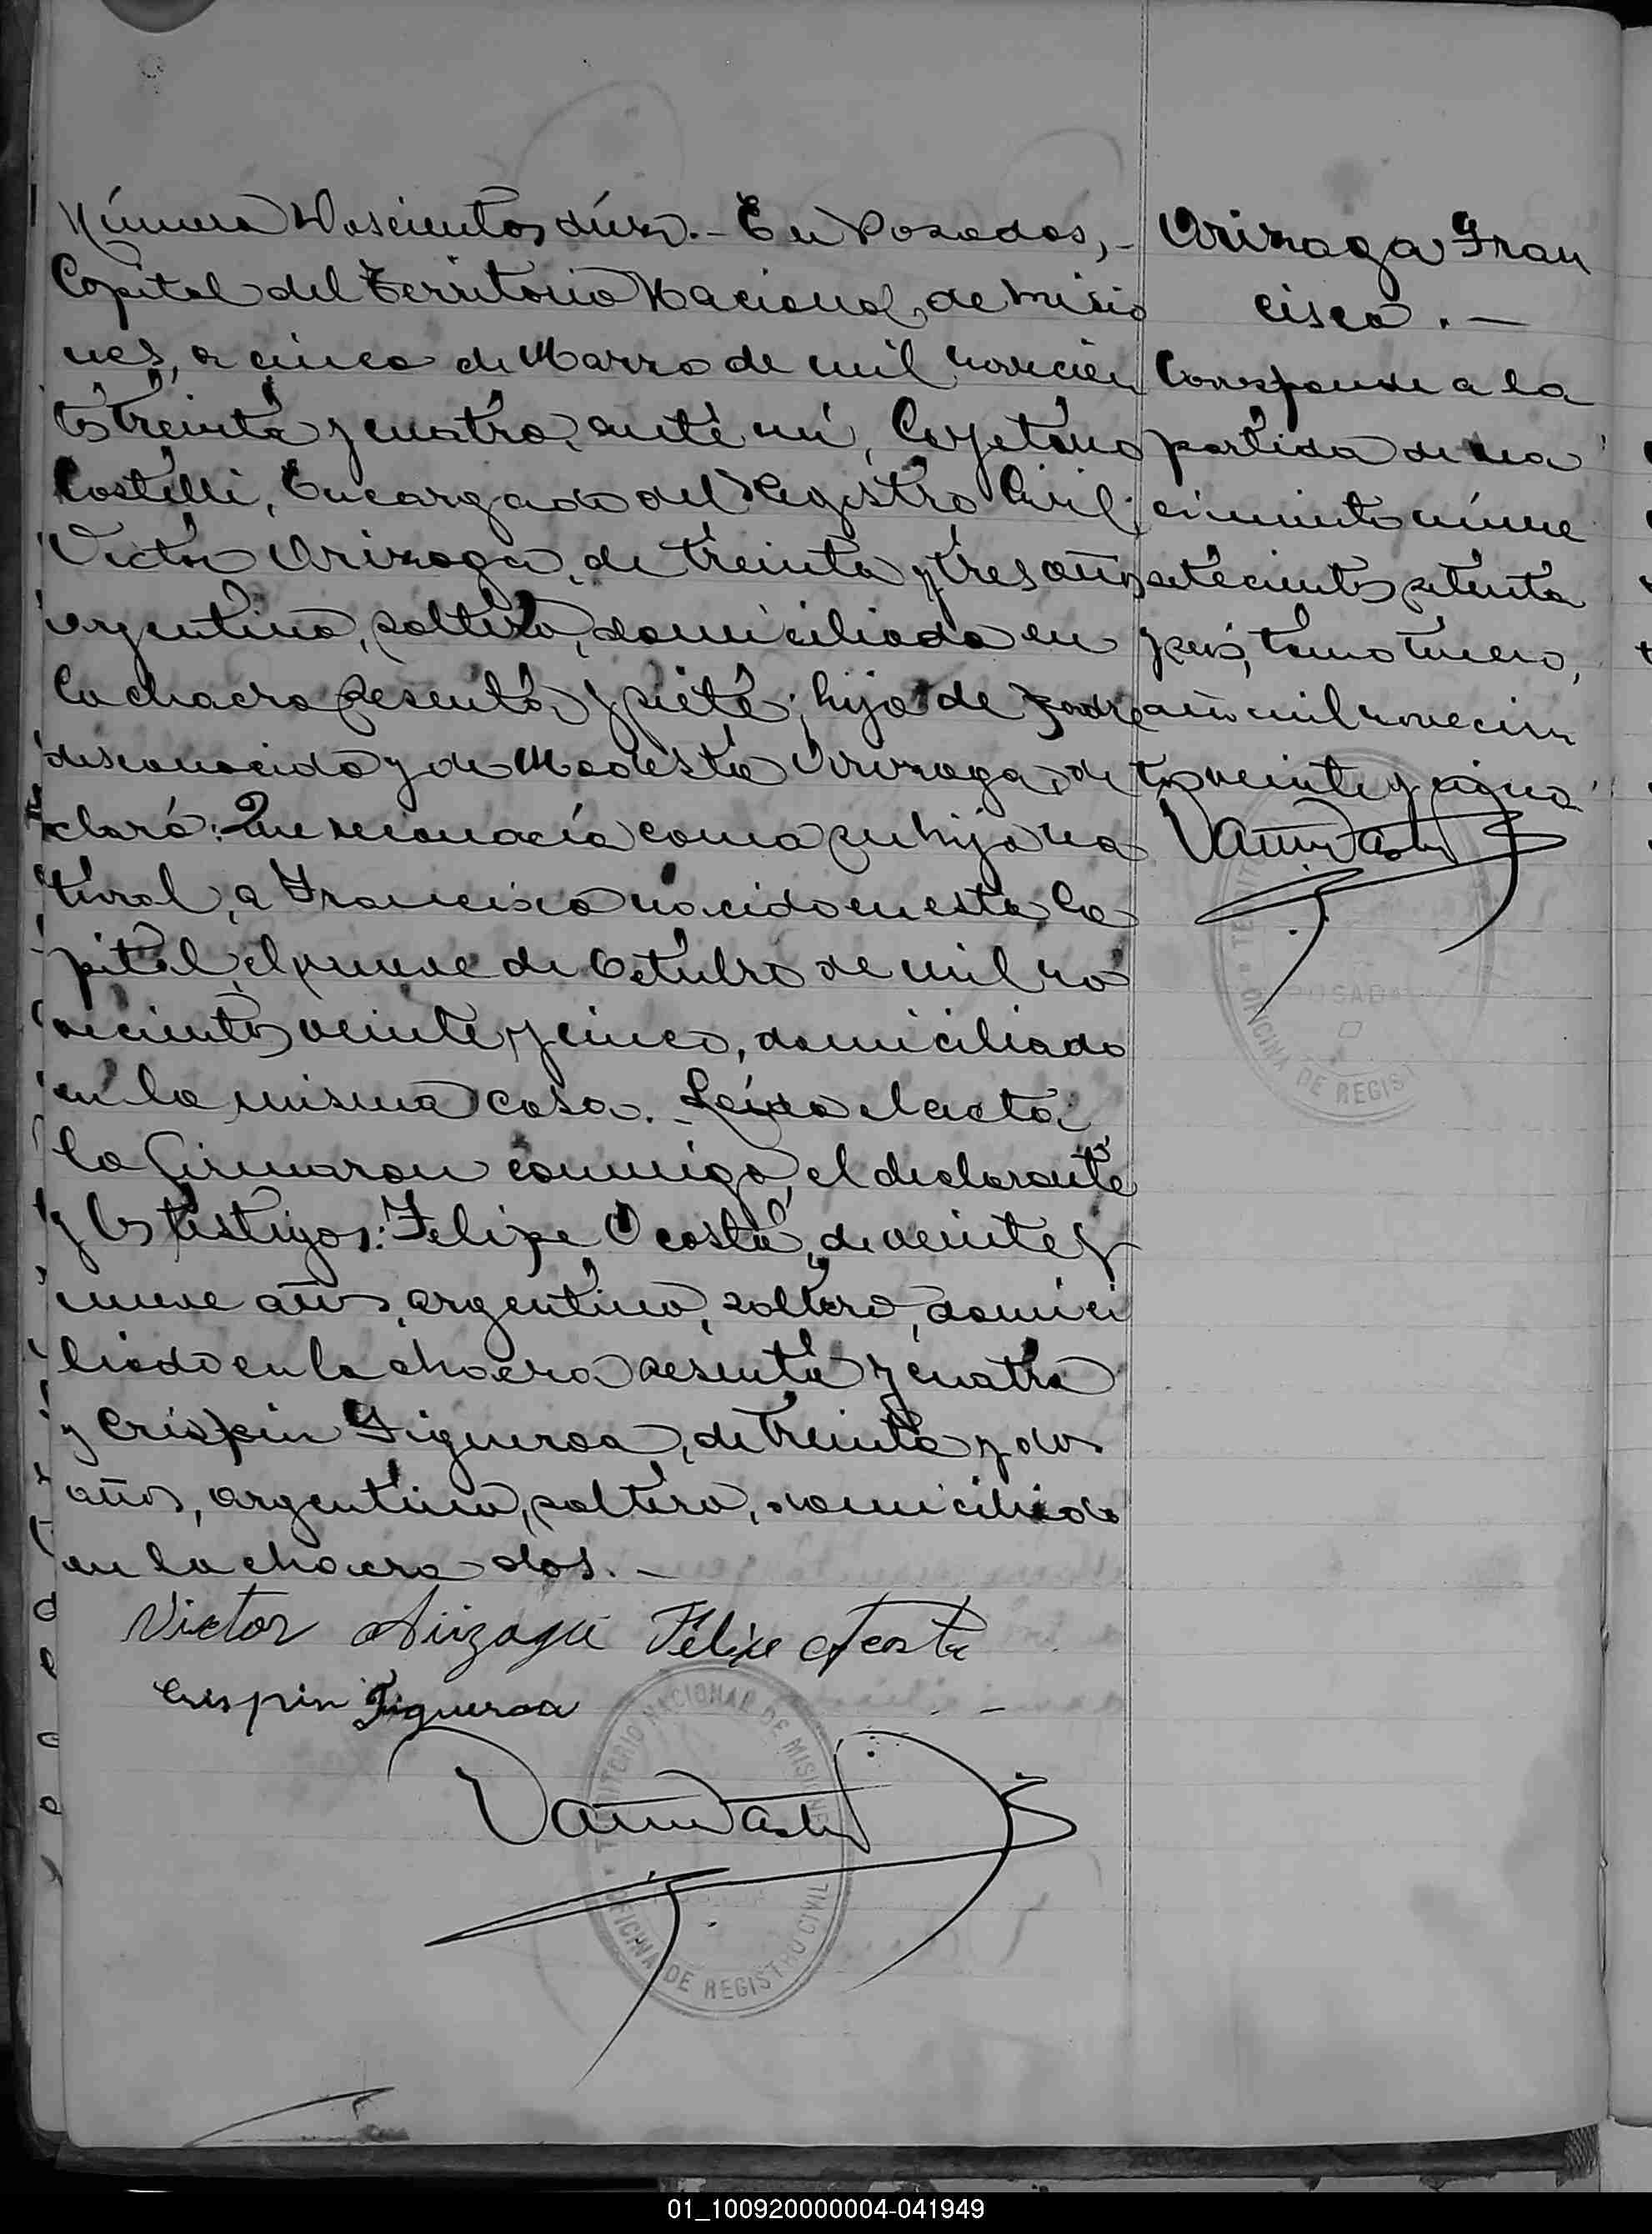 Número Doscientos diez.- En Posadas,-
Capital del Territorio Nacional, de Misio
nes, a cinco de Marzo de mil novecien
tos treinta y cuatro, ante mí, Cayetano
Castelli, Encargado del Registro Civil;
Victor Arizaga, de treinta y tres años
argentino, soltero, domiciliado en
la chacra sesenta y siete; hijo de padre
desconocido y de Modesta Arizaga, de
claró: Que reconocía como su hijo na
tural, a Francisco nacido en esta Ca
pital, el nueve de Octubre de mil no
vecientos veinte y cinco, domiciliado
en la misma casa.- Leída el acta,
la firmaron conmigo, el declarante
y los testigos: Felipe Acosta, de veinte y
nueve años, argentino, soltero, domici
liado en la chacra sesenta y cuatro
y Crispin Figueroa, de treinta y dos
años, argentino, soltero, domiciliado
en la chacra dos.-
Victor Arizaga Felipe Acosta
Crispin Figueroa
TERRITORIO NACIONAL DE MISIONES
OFICINA DE REGISTRO CIVIL
Arizaga Fran
cisco.-
Corresponde a la
partida de na
cimiento núme
setecientos setenta
y seis, tomo tercero,
año mil novecien
tos veinte y cinco
POSADAS
OFICINA DE REGIST
01_100920000004-041949